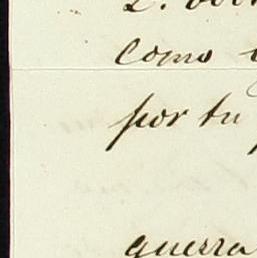 como
por tu
guerra